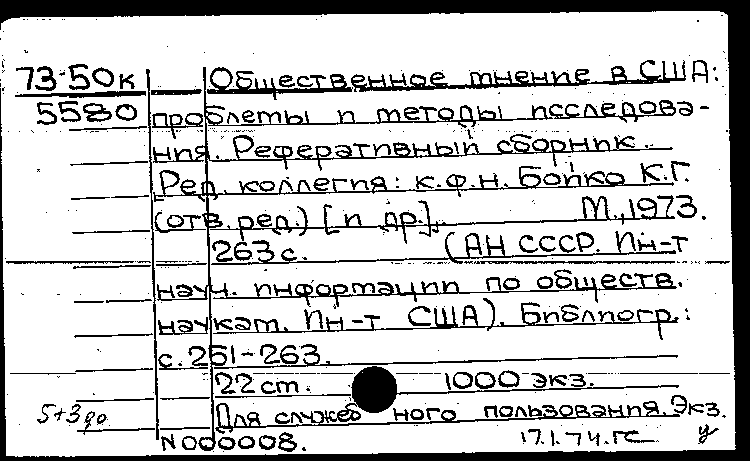 73-50к Общественное мнение в США:
5580 проблемы и методы исследова-
ния. Реферативный сборник.
Ред. коллегия: к.ф.н. Бойко К.Г.
(отв. ред.) [и др]. М., 1973.
263 с. (АН СССР. Ин-т
науч. информации по обществ.
наукам. Ин-т США). Библиогр.:
с. 251-263.
22 см. 1000 экз.
5+3 Для служебного пользования. Экз.
N 000008. 17.1.74.ГС у